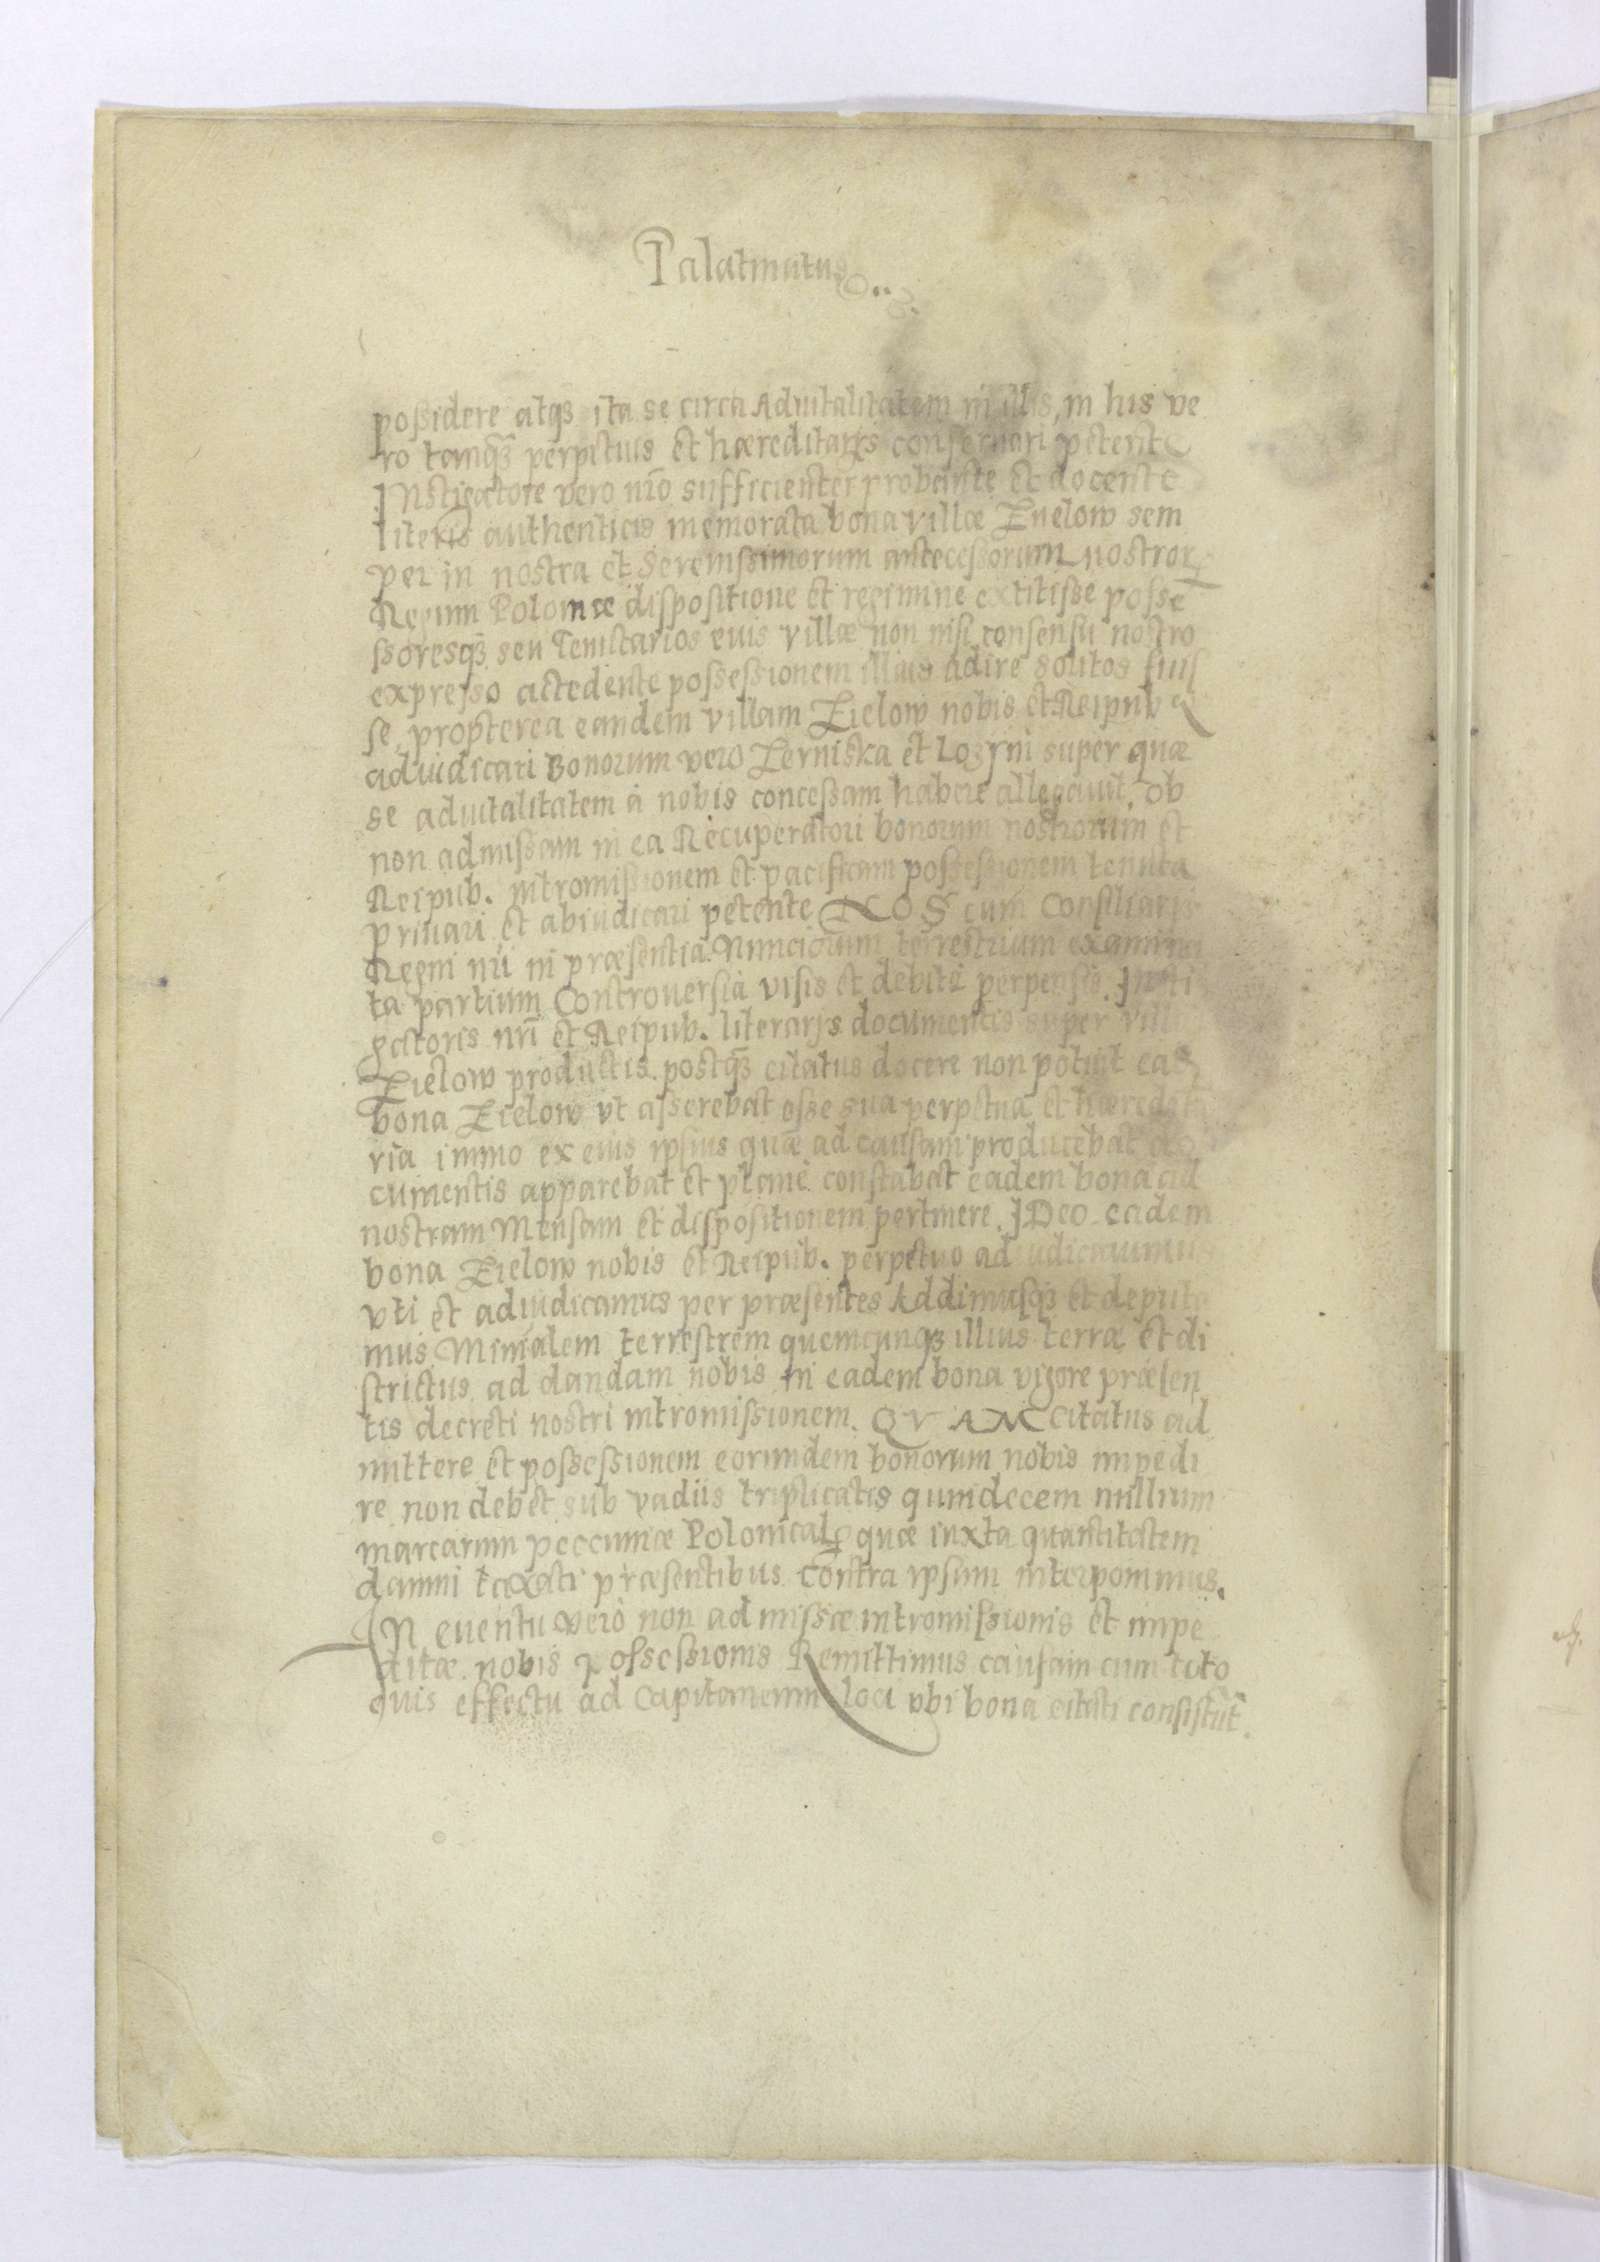 Palatinatus
possidere atqꝫ ita se circa Aduitalitatem in illis, in his ve
ro tanqꝫ perpetuis et hæreditarijs conseruari petente
INstigatore vero nr̄o sufficienter probante et docente
literis authenticis memorata bona villæ Zielow sem
per in nostra et Serenissimorum antecessorum nostror
Regum Poloniæ dispositione et regimine extitisse posse
ssoresqꝫ seu Tenutarios euis villæ non nisi consensu nostro
expresso accedente possessionem illius adire solitos fuis
se, propterea eandem villam Zielow nobis et Reipub
adiudicari Bonorum vero Zerniska et Lozyni super quæ
se aduitalitatem à nobis concessam habere allegauit, ob
non admissam in ea Recuperatori bonorum nostrorum et
Reipub. intromissionem et pacificam possessionem tenuta
priuari et abiudicari petente NOS cum Consiliarijs
Regni nr̄i in præsentia Nunciorum terrestrium examina
ta partium Controuersia visis et debite perpensis Insti
gatoris nr̄i et Reipub. literarijs documentis super vill
Zielow productis postqꝫ citatus docere non potuit ea
bona Zielow vt asserebat esse sua perpetua et hæredit
ria immo ex euis ipsius quæ ad causam producebat do
cumentis apparebat et plane constabat eadem bona ad
nostram Mensam et dispositionem pertinere. IDeo eadem
bona Zielow nobis et Reipub. perpetuo adiudicauimus
vti et adiudicamus per præsentes Addimusqꝫ et deputa
mus Minialem terrestrem quemcunqꝫ illius terræ et di
strictus ad dandam nobis in eadem bona vigore præsen
tis decreti nostri intromissionem. QVAM Citatus ad
mittere et possessionem eorundem bonorum nobis impedi
re non debet sub vadiis triplicatis quindecem millium
marcarum peccuniæ Polonical quæ iuxta quantitatem
damni taxati præsentibus contra ipsum interponimus.
IN euentu verò non admissæ intromissionis et impe
ditæ nobis possessionis Remittimus causam cum toto
quis effectu ad Capitaneum loci vbi bona citati consistūt.